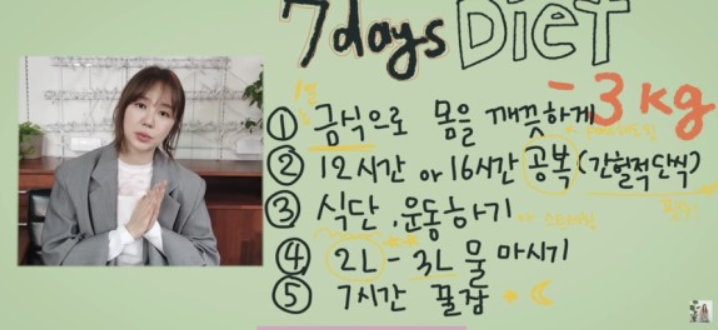 7days Diet
-3kg
1일
① 금식으로 몸을 깨끗하게
② 12시간 or 16시간 공복 (간헐적단식)
③ 식단, 운동하기
④ 2L - 3L 물 마시기
⑤ 7시간 꿀잠